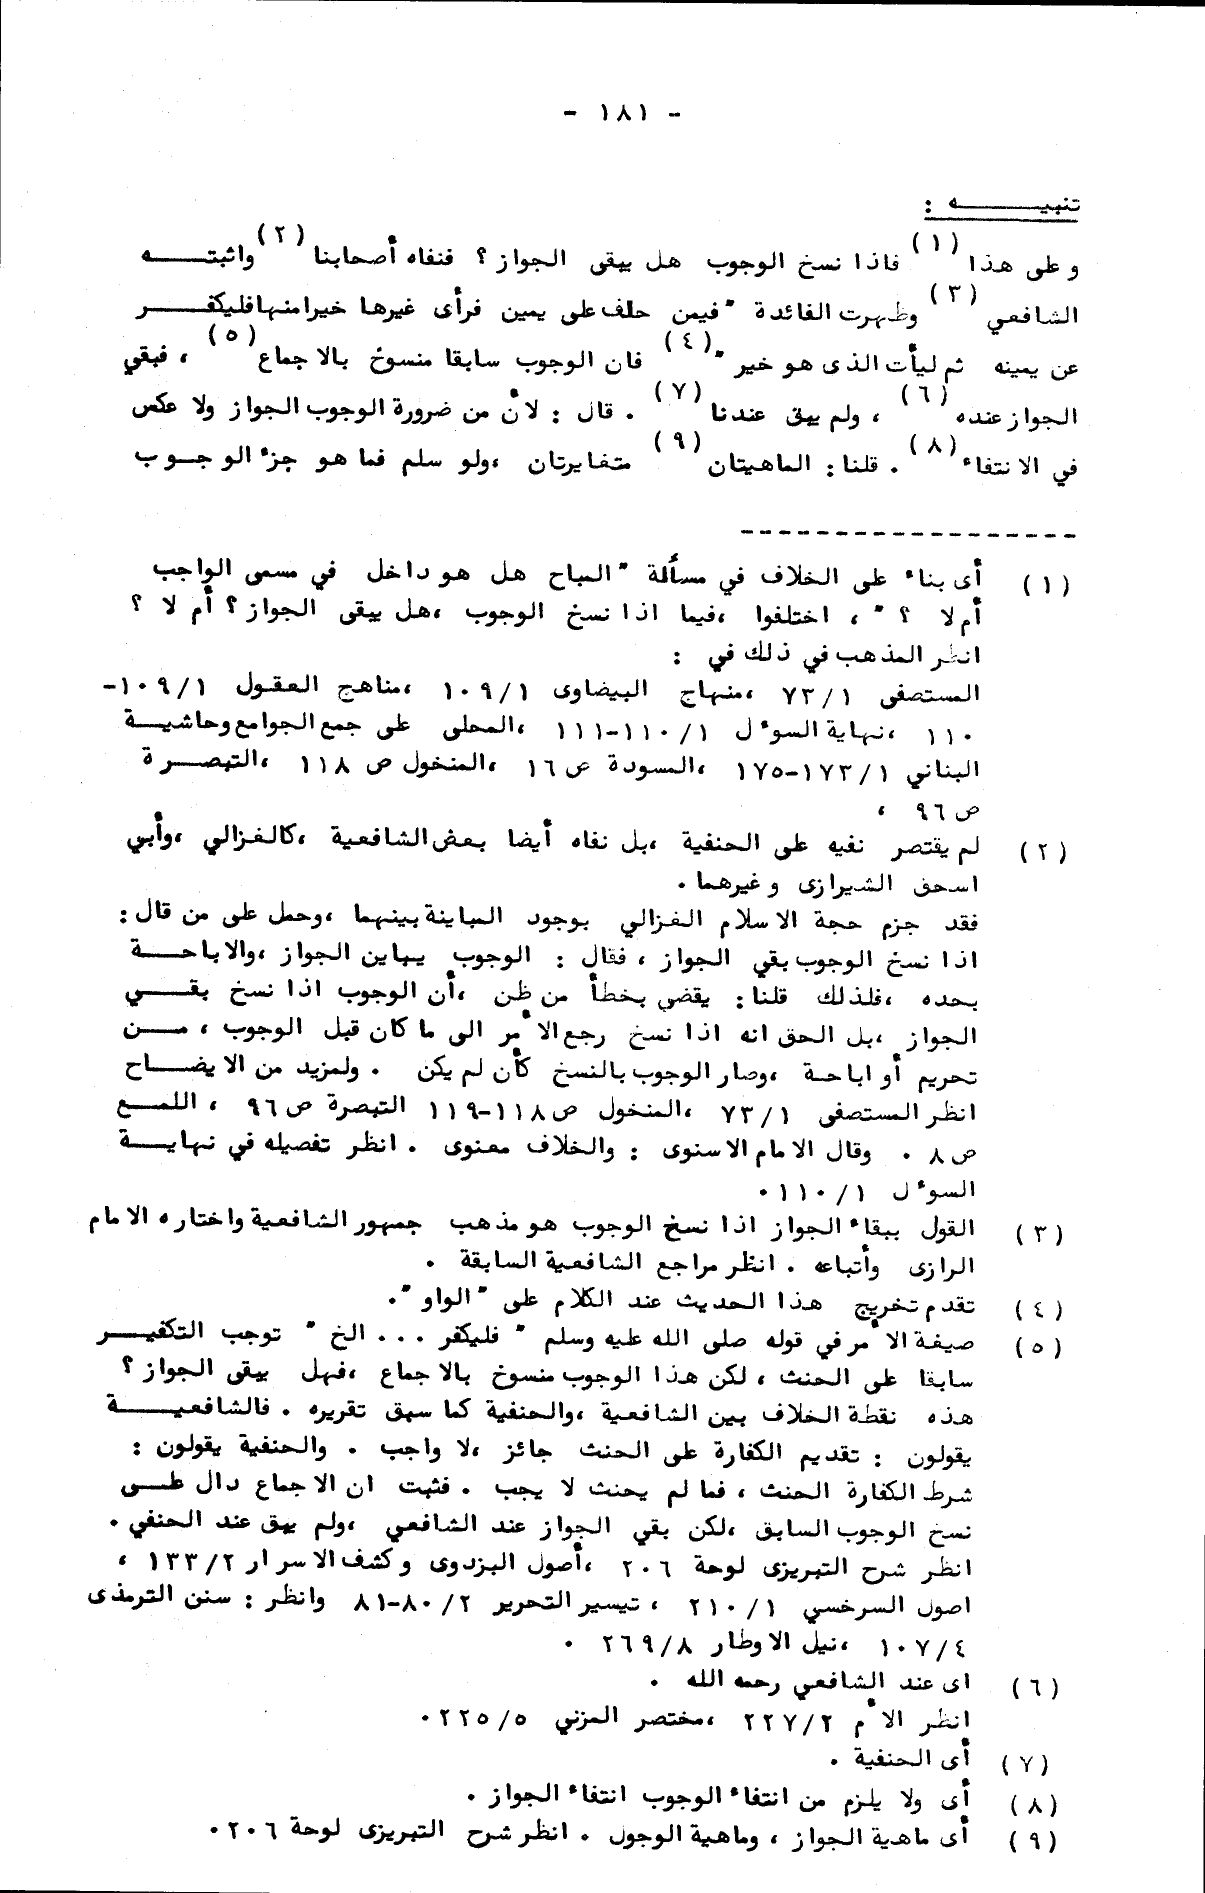 - ١٨١ -
تنبيـــــــه :
وعلى هذا (١) فاذا نسخ الوجوب هل يبقى الجواز ؟ فنفاه أصحابنا (٢) واثبتـــــه
الشافعي (٣) وظهرت الفائدة " فيمن حلف على يمين فرأى غيرها خيرا منها فليكفـــــر
عن يمينه ثم ليأت الذى هو خير " (٤) فان الوجوب سابقا منسوخ بالاجماع (٥) ، فبقي
الجواز عنده (٦) ، ولم يبق عندنا (٧) . قال : لأن من ضرورة الوجوب الجواز ولا عكس
في الانتفاء (٨) . قلنا : الماهيتان (٩) متغايرتان ، ولو سلم فما هو جزء الوجــوب
(١) أى بناء على الخلاف في مسألة " المباح هل هو داخل في مسمى الواجب
أم لا ؟ " ، اختلفوا ، فيما اذا نسخ الوجوب ، هل يبقى الجواز ؟ أم لا ؟
انظر المذهب في ذلك في :
المستصفى ٧٣/١ ، منهاج البيضاوى ١٠٩/١ ، مناهج العقول ١٠٩/١-
١١٠ ، نهاية السوٴل ١١٠/١-١١١ ، المحلى على جمع الجوامع وحاشيـــة
البناني ١٧٣/١-١٧٥ ، المسودة ص ١٦ ، المنخول ص ١١٨ ، التبصرة
ص ٩٦ ،
(٢) لم يقتصر نفيه على الحنفية ، بل نفاه أيضا بعض الشافعية ، كالغزالي ، وأبي
اسحق الشيرازى وغيرهما .
فقد جزم حجة الاسلام الغزالي بوجود المباينة بينهما ، وحمل على من قال :
اذا نسخ الوجوب بقي الجواز ، فقال : الوجوب يباين الجواز ، والاباحـــة
بحده ، فلذلك قلنا : يقضي بخطأ من ظن ، أن الوجوب اذا نسخ بقـــي
الجواز ، بل الحق انه اذا نسخ رجع الأمر الى ما كان قبل الوجوب ، مـــن
تحريم أو اباحة ، وصار الوجوب بالنسخ كأن لم يكن . ولمزيد من الايضـــاح
انظر المستصفى ٧٣/١ ، المنخول ص ١١٨-١١٩ التبصرة ص ٩٦ ، اللمــع
ص ٨ . وقال الامام الاسنوى : والخلاف معنوى . انظر تفصيله في نهايـــة
السوٴل ١١٠/١ .
(٣) القول ببقاء الجواز اذا نسخ الوجوب هو مذهب جمهور الشافعية واختاره الامام
الرازى وأتباعه . انظر مراجع الشافعية السابقة .
(٤) تقدم تخريج هذا الحديث عند الكلام على " الواو " .
(٥) صيغة الأمر في قوله صلى الله عليه وسلم " فليكفر ... الخ " توجب التكفيـــر
سابقا على الحنث ، لكن هذا الوجوب منسوخ بالاجماع ، فهل يبقى الجواز ؟
هذه نقطة الخلاف بين الشافعية ، والحنفية كما سبق تقريره . فالشافعيـــة
يقولون : تقديم الكفارة على الحنث جائز ، لا واجب . والحنفية يقولون :
شرط الكفارة الحنث ، فما لم يحنث لا يجب . فثبت ان الاجماع دال علـــى
نسخ الوجوب السابق ، لكن بقي الجواز عند الشافعي ، ولم يبق عند الحنفي .
انظر شرح التبريزى لوحة ٢٠٦ ، أصول البزدوى وكشف الاسرار ١٣٣/٢ ،
اصول السرخسي ٢١٠/١ ، تيسير التحرير ٨٠/٢-٨١ وانظر : سنن الترمذى
١٠٧/٤ ، نيل الاوطار ٢٦٩/٨ .
(٦) اى عند الشافعي رحمه الله .
انظر الأم ٢٢٧/٢ ، مختصر المزني ٢٢٥/٥ .
(٧) أى الحنفية .
(٨) أى ولا يلزم من انتفاء الوجوب انتفاء الجواز .
(٩) أى ماهية الجواز ، وماهية الوجول . انظر شرح التبريزى لوحة ٢٠٦ .